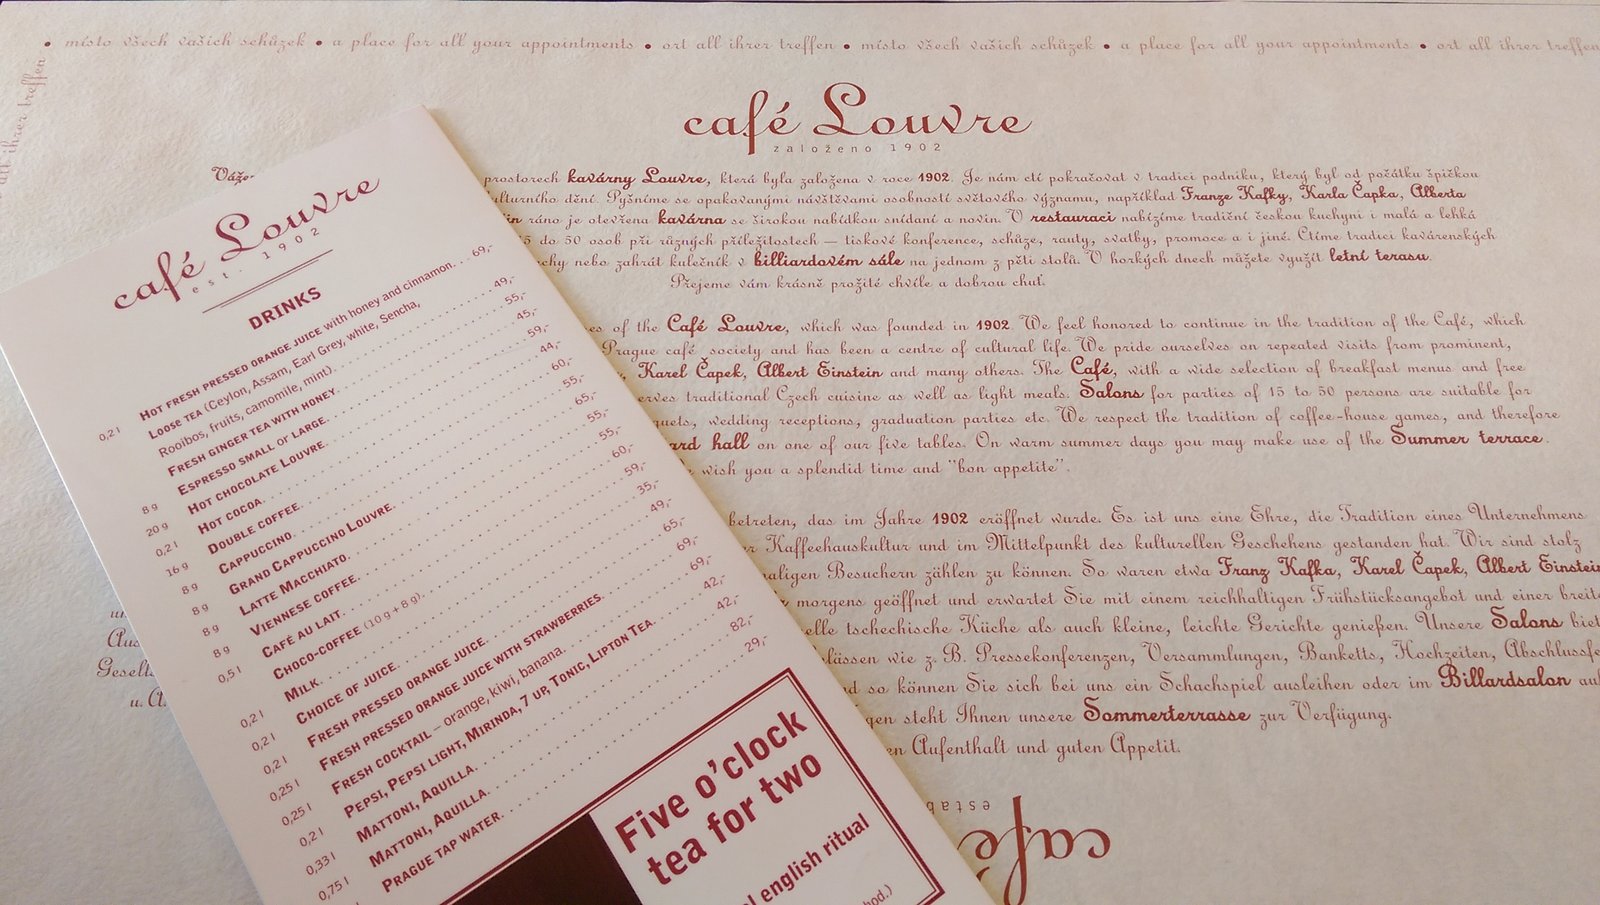 • místo všech vašich schůzek • a place for all your appointments • ort all ihrer treffen • místo všech vašich schůzek • a place for all your appointments • ort all ihrer treffen
all ihrer treffen
café Louvre
založeno 1902
Váže-
prostorech kavárny Louvre, která byla založena v roce 1902. Je nám ctí pokračovat v tradici podniku, který byl od počátku špičkou
kulturního dění. Pyšníme se opakovanými návštěvami osobností světového významu, například Franze Kafky, Karla Čapka, Alberta
ráno je otevřena kavárna se širokou nabídkou snídaní a novin. V restauraci nabízíme tradiční českou kuchyni i malá a lehká
15 do 50 osob při různých příležitostech – tiskové konference, schůze, rauty, svatby, promoce a i jiné. Ctíme tradici kavárenských
nebo zahrát kulečník v billiardovém sále na jednom z pěti stolů. V horkých dnech můžete využít letní terasu.
Přejeme vám krásně prožité chvíle a dobrou chuť.
of the Café Louvre, which was founded in 1902. We feel honored to continue in the tradition of the Café, which
Prague café society and has been a centre of cultural life. We pride ourselves on repeated visits from prominent,
Karel Čapek, Albert Einstein and many others. The Café, with a wide selection of breakfast menus and free
erves traditional Czech cuisine as well as light meals. Salons for parties of 15 to 50 persons are suitable for
quets, wedding receptions, graduation parties etc. We respect the tradition of coffee-house games, and therefore
ard hall on one of our five tables. On warm summer days you may make use of the Summer terrace.
wish you a splendid time and "bon appetite".
betreten, das im Jahre 1902 eröffnet wurde. Es ist uns eine Ehre, die Tradition eines Unternehmens
Kaffeehauskultur und im Mittelpunkt des kulturellen Geschehens gestanden hat. Wir sind stolz
maligen Besuchern zählen zu können. So waren etwa Franz Kafka, Karel Čapek, Albert Einstein
morgens geöffnet und erwartet Sie mit einem reichhaltigen Frühstücksangebot und einer breite
elle tschechische Küche als auch kleine, leichte Gerichte genießen. Unsere Salons biet
lässen wie z. B. Pressekonferenzen, Versammlungen, Banketts, Hochzeiten, Abschlussfe
Gesells
nd so können Sie sich bei uns ein Schachspiel ausleihen oder im Billardsalon au
gen steht Ihnen unsere Sommerterrasse zur Verfügung.
en Aufenthalt und guten Appetit.
estab
café
café Louvre
est. 1902
DRINKS
0,2 l HOT FRESH PRESSED ORANGE JUICE with honey and cinnamon. . . 69,-
LOOSE TEA (Ceylon, Assam, Earl Grey, white, Sencha,
Rooibos, fruits, camomile, mint). 49,-
FRESH GINGER TEA WITH HONEY 55,-
8 g ESPRESSO SMALL or LARGE. 45,-
20 g HOT CHOCOLATE LOUVRE. 59,-
0,2 l HOT COCOA. 44,-
16 g DOUBLE COFFEE. 60,-
8 g CAPPUCCINO. 55,-
8 g GRAND CAPPUCCINO LOUVRE. 65,-
8 g LATTE MACCHIATO. 55,-
8 g VIENNESE COFFEE. 55,-
0,5 l CAFÉ AU LAIT. 60,-
CHOCO-COFFEE (10 g + 8 g). 59,-
0,2 l MILK. 35,-
0,2 l CHOICE OF JUICE. 49,-
0,2 l FRESH PRESSED ORANGE JUICE. 65,-
0,25 l FRESH PRESSED ORANGE JUICE WITH STRAWBERRIES. 69,-
0,25 l FRESH COCKTAIL – orange, kiwi, banana. 69,-
0,2 l PEPSI, PEPSI LIGHT, MIRINDA, 7 UP, TONIC, LIPTON TEA. 42,-
0,33 l MATTONI, AQUILLA. 42,-
0,75 l MATTONI, AQUILLA. 82,-
PRAGUE TAP WATER. 29,-
Five o'clock
tea for two
english ritual